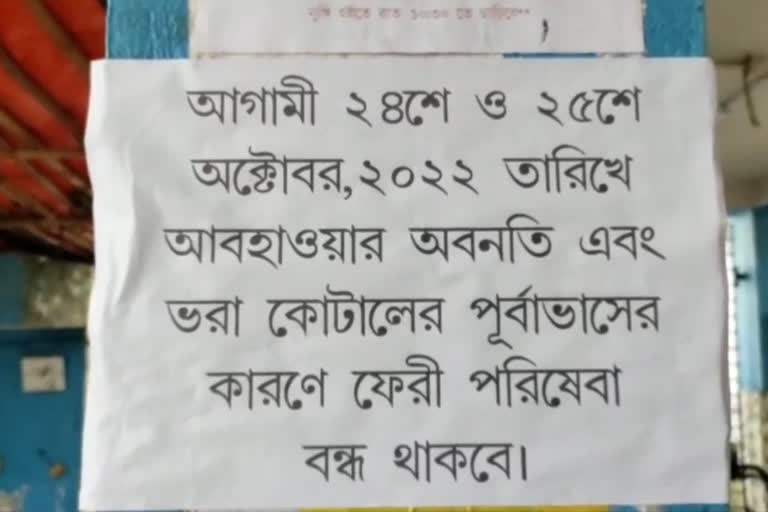 আগামী ২৪শে ও ২৫শে
অক্টোবর,২০২২ তারিখে
আবহাওয়ার অবনতি এবং
ভরা কোটালের পূর্বাভাসের
কারণে ফেরী পরিষেবা
বন্ধ থাকবে।